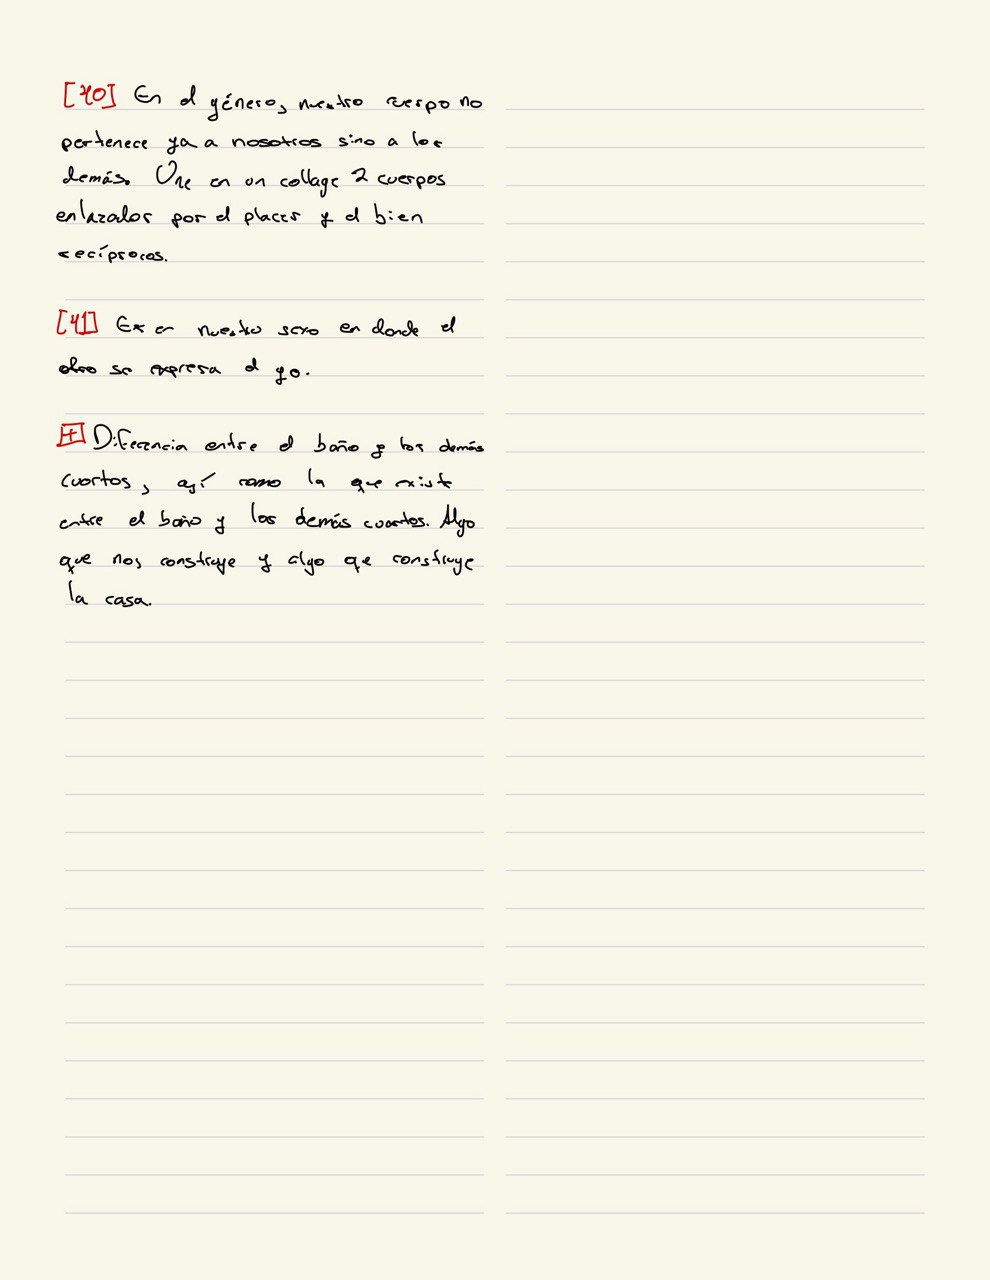 [40] En el género, nuestro cuerpo no
pertenece ya a nosotros sino a los
demás. Une en un collage 2 cuerpos
enlazados por el placer y el bien
recíprocos.
[41] Es en nuestro sexo en donde el
otro se expresa el yo.
[+] Diferencia entre el baño y los demás
cuartos, así como la que existe
entre el baño y los demás cuartos. Algo
que nos construye y algo que construye
la casa.